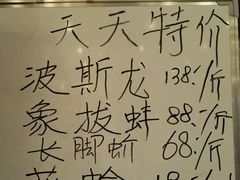 天天特价
波斯龙 138.-/斤
象拔蚌 88.-/斤
长脚蚧 68.-/斤